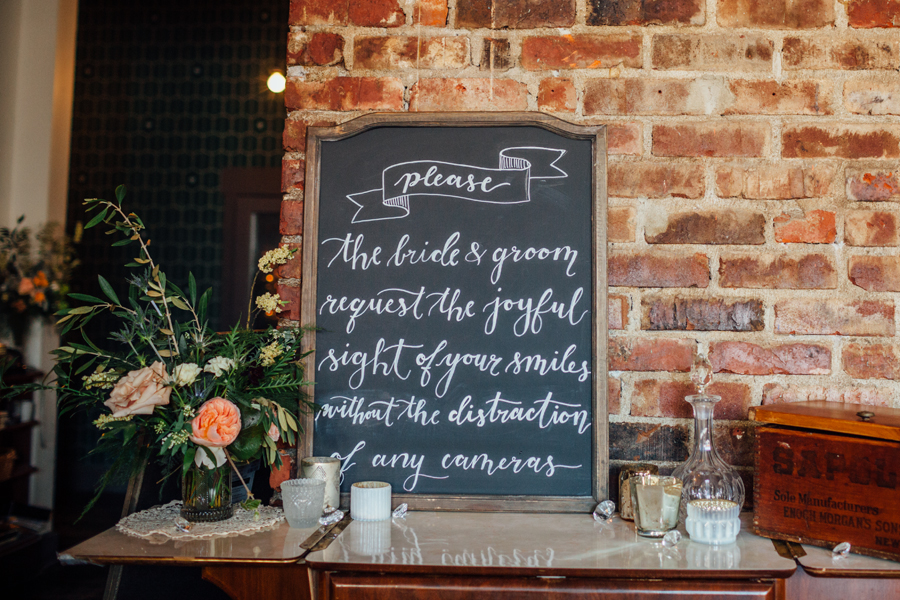 please
the bride & groom
request the joyful
sight of your smiles
without the distraction
of any cameras
Sole Manufacturers
ENOCH MORGAN'S SON